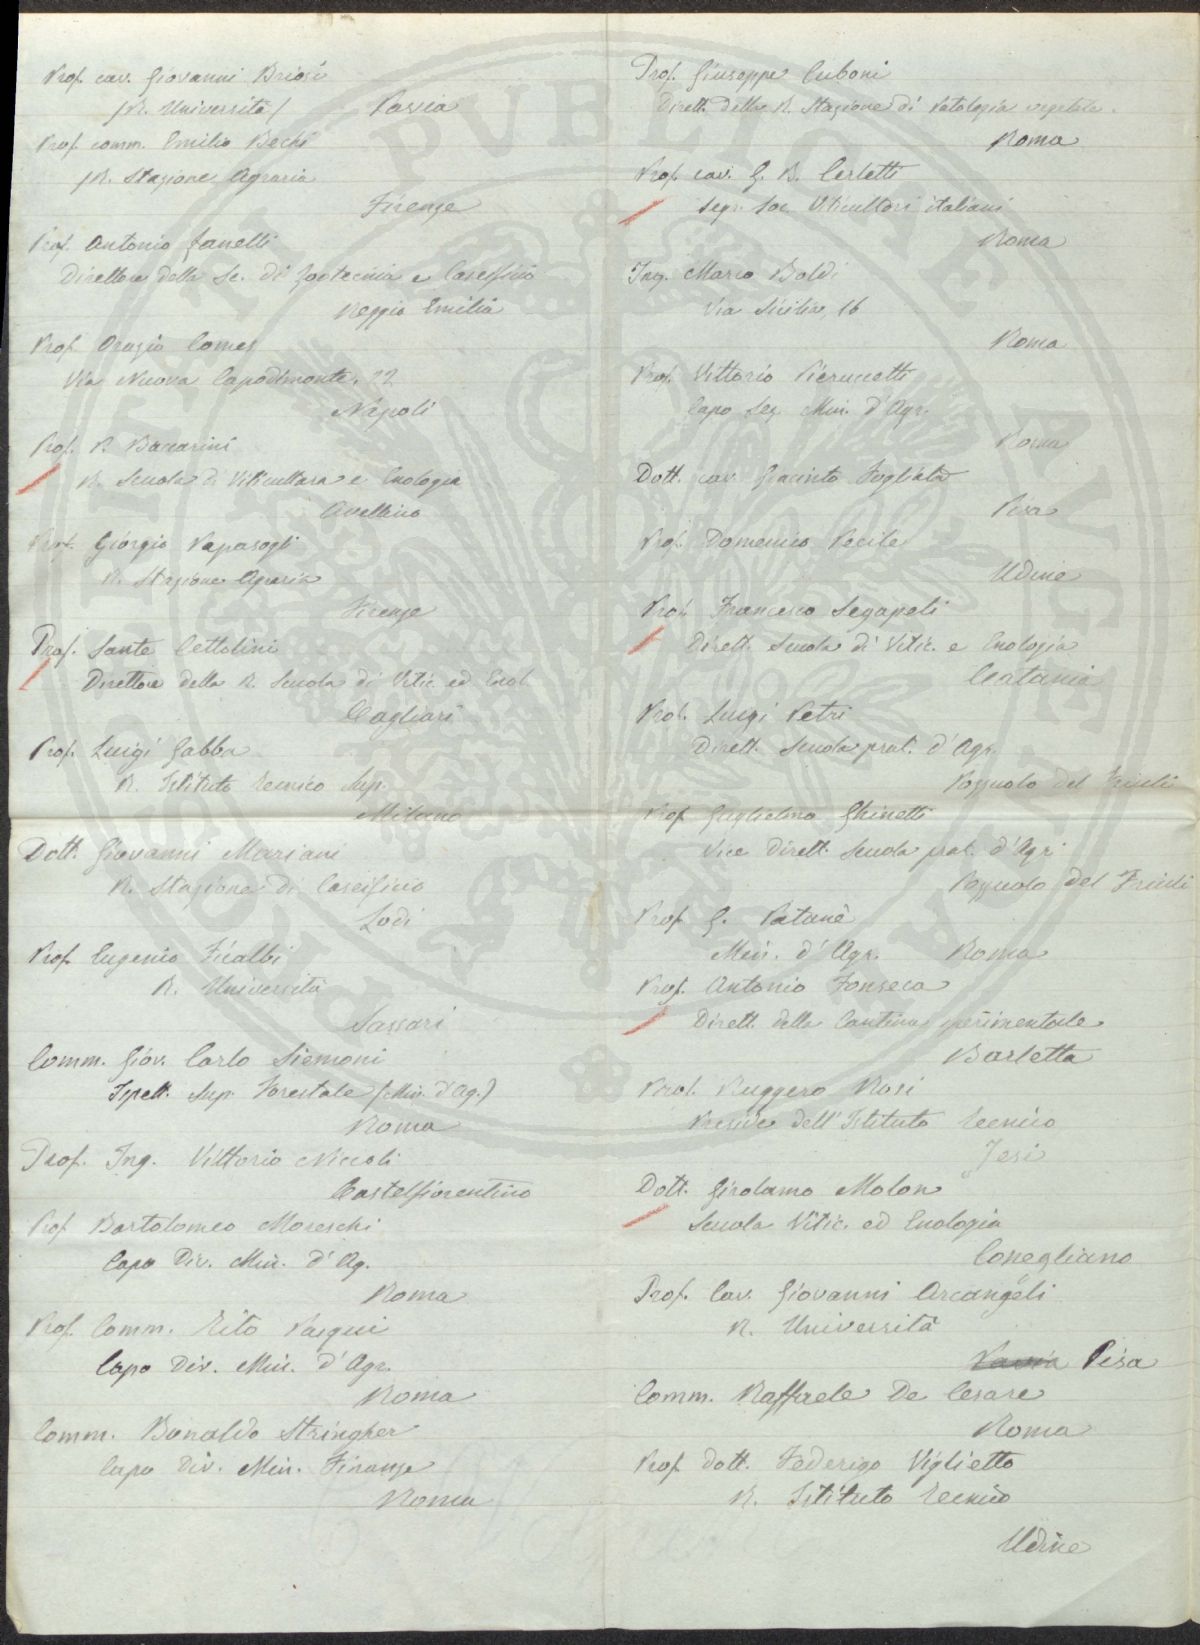 Prof. cav. Giovanni Briosi
(R. Università) Pavia
Prof. comm. Emilio Bechi
R. Stazione Agraria
Firenze
Prof. Antonio Zanelli
Direttore della Sc. di Zootecnia e Caseificio
Reggio Emilia
Prof. Orazio Comes
Via Nuova Capodimonte, 22
Napoli
Prof. P. Baccarini
R. Scuola di Viticultura e Enologia
Avellino
Prof. Giorgio Papasogli
R. Stazione Agraria
Firenze
Prof. Sante Cettolini
Direttore della R. Scuola di Vitic. ed Enol.
Cagliari
Prof. Luigi Gabba
R. Istituto Tecnico Sup.
Milano
Dott. Giovanni Mariani
R. Stazione di Caseificio
Lodi
Prof. Eugenio Ficalbi
R. Università
Sassari
Comm. Giov. Carlo Siemoni
Ispett. Sup. Forestale (Min. d'Ag.)
Roma
Prof. Ing. Vittorio Niccoli
Castelfiorentino
Prof. Bartolomeo Moreschi
Capo Div. Min. d'Ag.
Roma
Prof. Comm. Tito Pasqui
Capo Div. Min. d'Agr.
Roma
Comm. Bonaldo Stringher
Capo Div. Min. Finanze
Roma
Prof. Giuseppe Cuboni
Dirett. della R. Stazione di Patologia vegetale.
Roma
Prof. cav. G. B. Cerletti
Segr. Soc. Viticultori italiani
Roma
Ing. Marco Boldi
Via Sicilia 16
Roma
Prof. Vittorio Pieruccetti
Capo Sez. Min. d'Agr.
Roma
Dott. cav. Giacinto Fogliata
Pisa
Prof. Domenico Pecile
Udine
Prof. Francesco Segapeli
Dirett. Scuola di Vitic. e Enologia
Catania
Prof. Luigi Petri
Dirett. Scuola prat. d'Agr.
Pozzuolo del Friuli
Prof. Guglielmo Ghinetti
Vice Dirett. Scuola prat. d'Agri
Pozzuolo del Friuli
Prof. G. Patanè
Min. d'Agr. Roma
Prof. Antonio Fonseca
Dirett. della Cantina sperimentale
Barletta
Prof. Ruggero Rosi
Preside dell'Istituto Tecnico
Jesi
Dott. Girolamo Molon
Scuola Vitic. ed Enologia
Conegliano
Prof. Cav. Giovanni Arcangeli
R. Università
Pavia Pisa
Comm. Raffaele De Cesare
Roma
Prof. dott. Federigo Viglietto
R. Istituto Tecnico
Udine